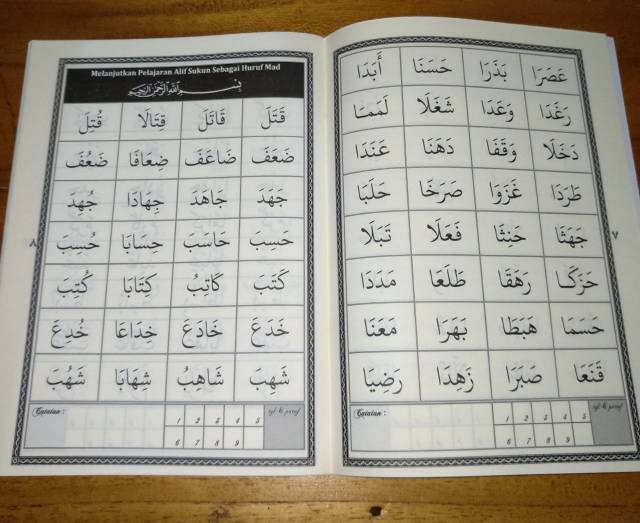 عَصَرَا بَذَرَا حَسَنَا أَبَدَا
رَغَدَا وَعَدَا شَغَلَا لَمَمَا
دَخَلَا وَقَفَا دَهَنَا عَنَدَا
طَرَدَا غَزَوَا صَرَخَا حَلَبَا
جَهَثَا حَنِثَا فَعَلَا تَبَلَا
حَزَكَا رَهَقَا طَلَعَا مَدَدَا
حَسَمَا هَبَطَا بَهَرَا مَعَنَا
قَنَعَا صَبَرَا زَهِدَا رَضِيَا
Catatan : 1 2 3 4 5 tgl & paraf
6 7 8 9
٧
Melanjutkan Pelajaran Alif Sukun Sebagai Huruf Mad
بسم الله الرحمن الرحيم
قَتَلَ قَاتَلَ قِتَالًا قُتِلَ
ضَعَفَ ضَاعَفَ ضِعَافًا ضَعُفَ
جَهَدَ جَاهَدَ جِهَادًا جُهِدَ
حَسِبَ حَاسَبَ حِسَابَا حُسِبَ
كَتَبَ كَاتِبُ كِتَابَا كُتِبَ
خَدَعَ خَادَعَ خِدَاعَا خُدِعَ
شَهِبَ شَاهِبُ شِهَابَا شَهُبَ
Catatan : 1 2 3 4 5 tgl & paraf
6 7 8 9
٨